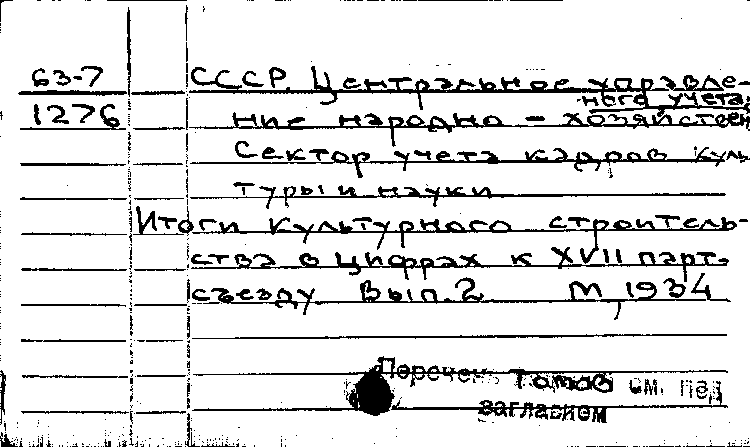 63-7 СССР. Центральное управле-
1276 ние народно-хозяйствен
ного учета.
Сектор учета кадров куль
туры и науки
Итоги культурного строитель-
ства в цифрах к XVII парт.
съезду. Вып. 2 М, 1934
Перечень томов см. под
заглавием